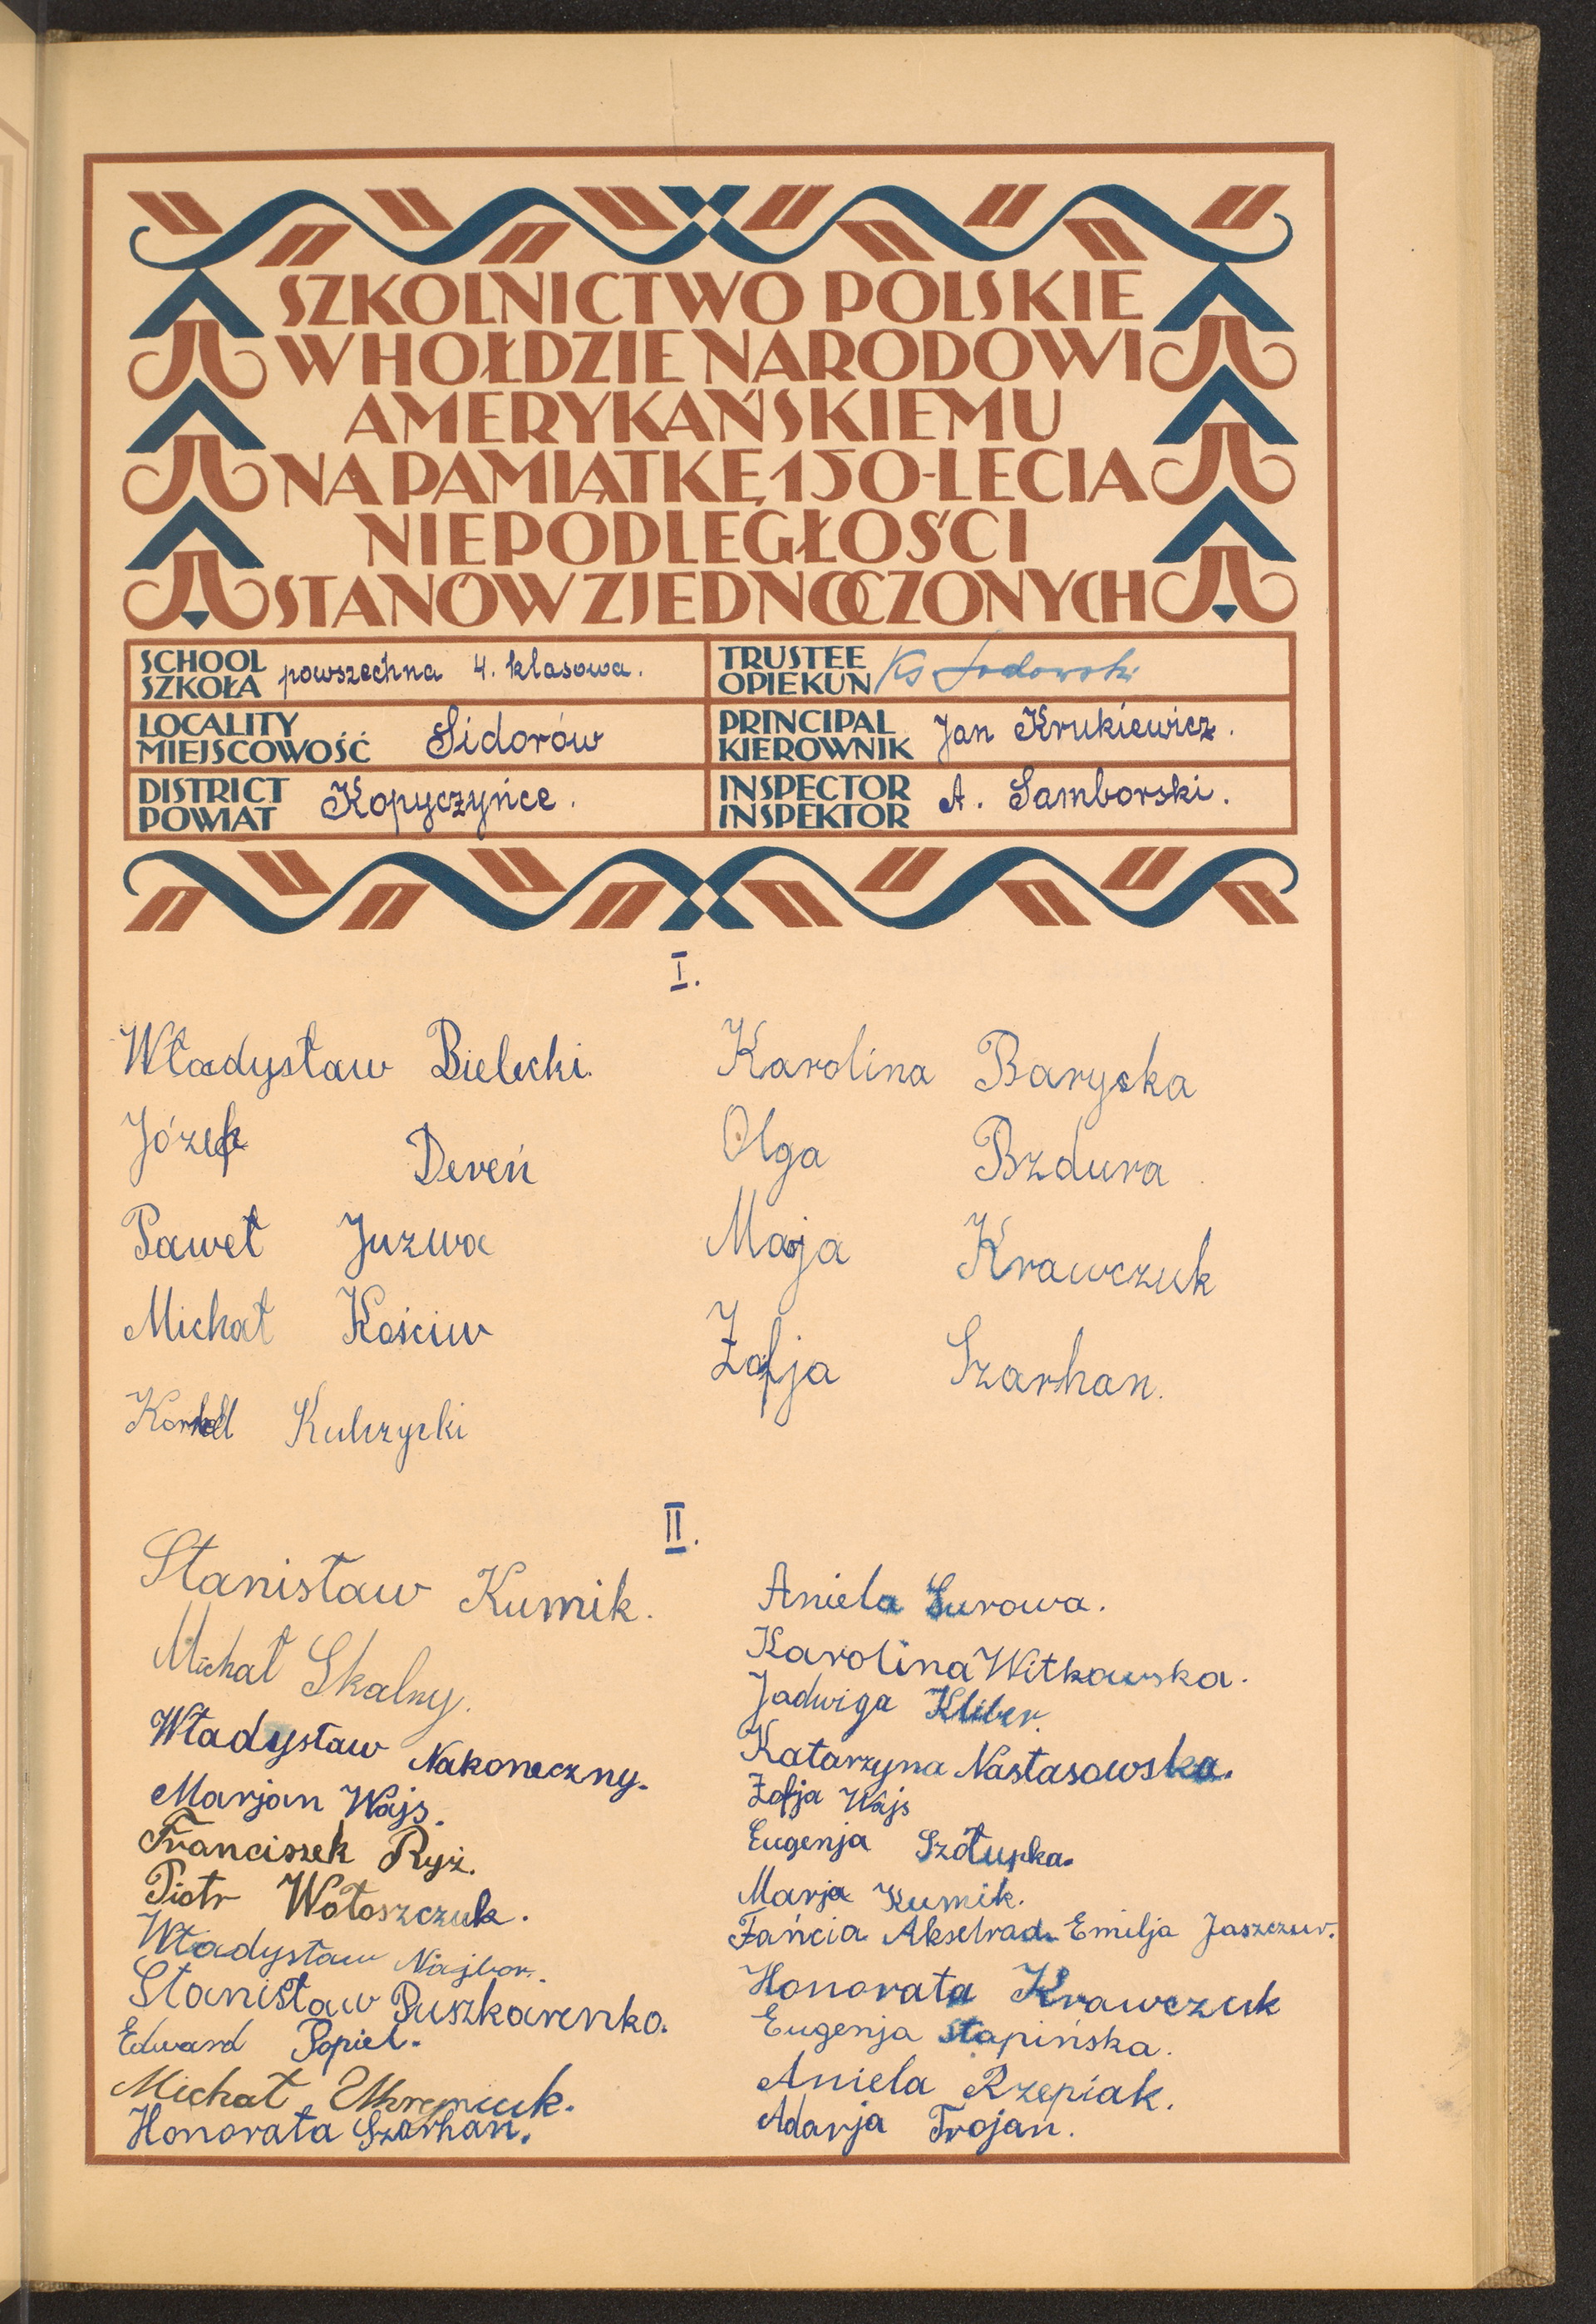 SZKOLNICTWO POLSKIE
W HOŁDZIE NARODOWI
AMERYKAŃSKIEMU
NA PAMIĄTKĘ 150-LECIA
NIEPODLEGŁOŚCI
STANÓW ZJEDNOCZONYCH
SCHOOL
SZKOŁA powszechna 4. klasowa.
TRUSTEE
OPIEKUN Ks
LOCALITY
MIEJSCOWOŚĆ Sidorów
PRINCIPAL
KIEROWNIK Jan Krukiewicz.
DISTRICT
POWIAT Kopyczyńce.
INSPECTOR
INSPEKTOR A. Samborski.
I.
Władysław Bielecki.
Józef Dereń
Paweł Juzwa
Michał Kościw
Kornel Kulczycki
Karolina Barycka
Olga Bzdura
Maja Krawczuk
Zofja Szarhan.
II.
Stanisław Kumik.
Michał Skalny.
Władysław Nakoneczny.
Marjan Wajs.
Franciszek Ryż.
Piotr Wołoszczuk.
Władysław Najbor.
Stanisław Puszkarenko.
Edward Popiel.
Michał
Honorata Szarhan.
Aniela Surowa.
Karolina Witkowska.
Jadwiga Kliber.
Katarzyna Nastasowska.
Zofja Wajs
Eugenja Szółupka.
Marja Kumik.
Fańcia Akselrad. Emilja Jaszczur.
Honorata Krawczuk
Eugenja Stapińska.
Aniela Rzepiak.
Adarja Trojan.